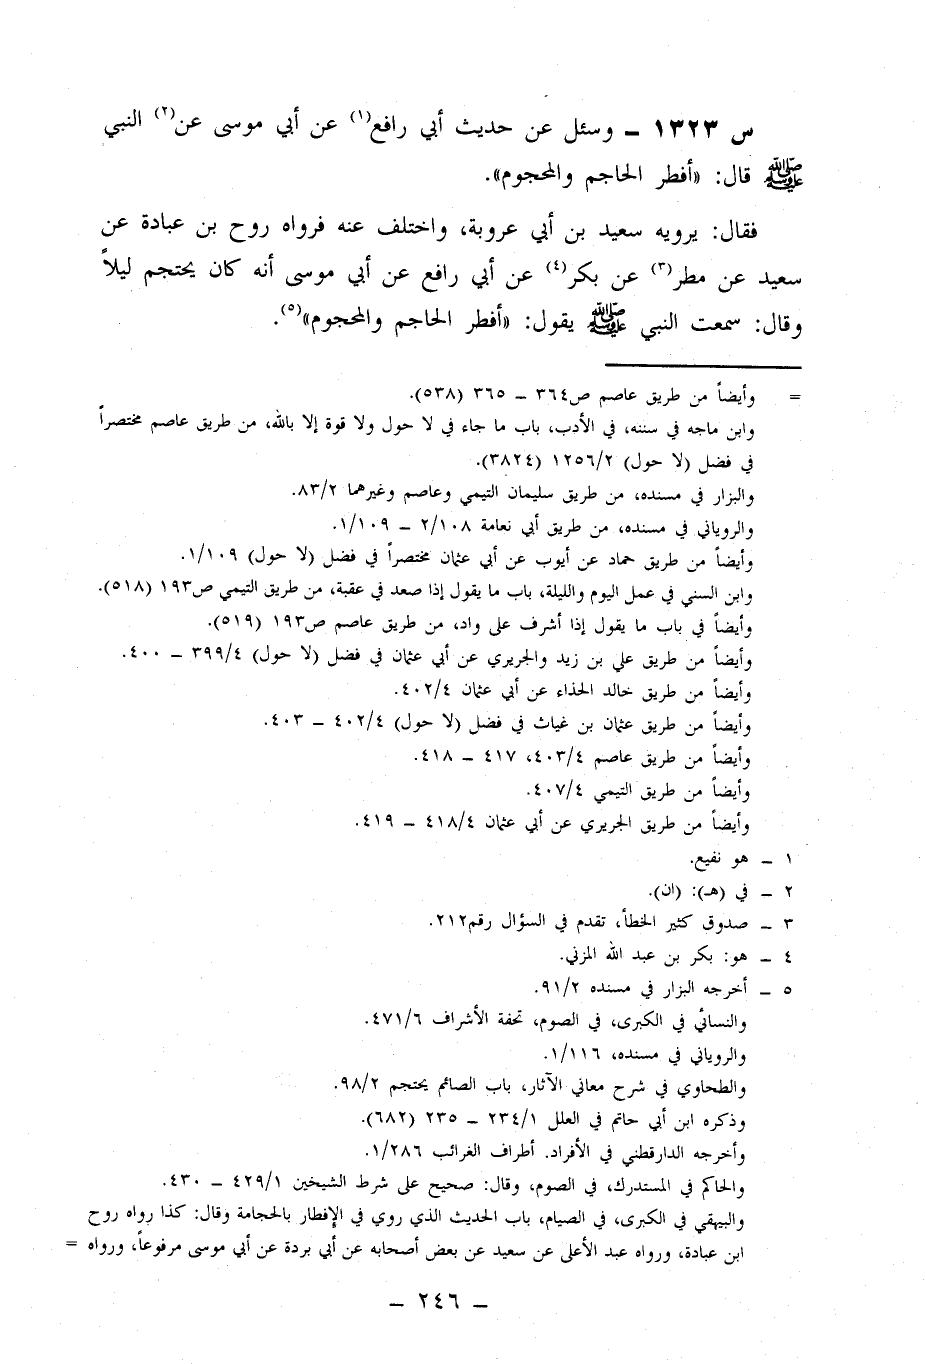 س ١٣٢٣ ـ وسئل عن حديث أبي رافع(١) عن أبي موسى عن(٢) النبي
ﷺ قال: «أفطر الحاجم والمحجوم».
فقال: يرويه سعيد بن أبي عروبة، واختلف عنه فرواه روح بن عبادة عن
سعيد عن مطر(٣) عن بكر(٤) عن أبي رافع عن أبي موسى أنه كان يحتجم ليلاً
وقال: سمعت النبي ﷺ يقول: «أفطر الحاجم والمحجوم»(٥).
= وأيضاً من طريق عاصم ص٣٦٤ ـ ٣٦٥ (٥٣٨).
وابن ماجه في سننه، في الأدب، باب ما جاء في لا حول ولا قوة إلا بالله، من طريق عاصم مختصراً
في فضل (لا حول) ١٢٥٦/٢ (٣٨٢٤).
والبزار في مسنده، من طريق سليمان التيمي وعاصم وغيرهما ٨٣/٢.
والروياني في مسنده، من طريق أبي نعامة ٢/١٠٨ ـ ١/١٠٩.
وأيضاً من طريق حماد عن أيوب عن أبي عثمان مختصراً في فضل (لا حول) ١/١٠٩.
وابن السني في عمل اليوم والليلة، باب ما يقول إذا صعد في عقبة، من طريق التيمي ص١٩٣ (٥١٨).
وأيضاً في باب ما يقول إذا أشرف على واد، من طريق عاصم ص١٩٣ (٥١٩).
وأيضاً من طريق علي بن زيد والجريري عن أبي عثمان في فضل (لا حول) ٣٩٩/٤ ـ ٤٠٠.
وأيضاً من طريق خالد الحذاء عن أبي عثمان ٤٠٢/٤.
وأيضاً من طريق عثمان بن غياث في فضل (لا حول) ٤٠٢/٤ ـ ٤٠٣.
وأيضاً من طريق عاصم ٤٠٣/٤، ٤١٧ ـ ٤١٨.
وأيضاً من طريق التيمي ٤٠٧/٤.
وأيضاً من طريق الجريري عن أبي عثمان ٤١٨/٤ ـ ٤١٩.
١ ـ هو نفيع.
٢ ـ في (هـ): (ان).
٣ ـ صدوق كثير الخطأ، تقدم في السؤال رقم٢١٢.
٤ ـ هو: بكر بن عبد الله المزني.
٥ ـ أخرجه البزار في مسنده ٩١/٢.
والنسائي في الكبرى، في الصوم، تحفة الأشراف ٤٧١/٦.
والروياني في مسنده، ١/١١٦.
والطحاوي في شرح معاني الآثار، باب الصائم يحتجم ٩٨/٢.
وذكره ابن أبي حاتم في العلل ٢٣٤/١ ـ ٢٣٥ (٦٨٢).
وأخرجه الدارقطني في الأفراد. أطراف الغرائب ١/٢٨٦.
والحاكم في المستدرك، في الصوم، وقال: صحيح على شرط الشيخين ٤٢٩/١ ـ ٤٣٠.
والبيهقي في الكبرى، في الصيام، باب الحديث الذي روي في الإفطار بالحجامة وقال: كذا رواه روح
ابن عبادة، ورواه عبد الأعلى عن سعيد عن بعض أصحابه عن أبي بردة عن أبي موسى مرفوعاً، ورواه =
ـ ٢٤٦ ـ